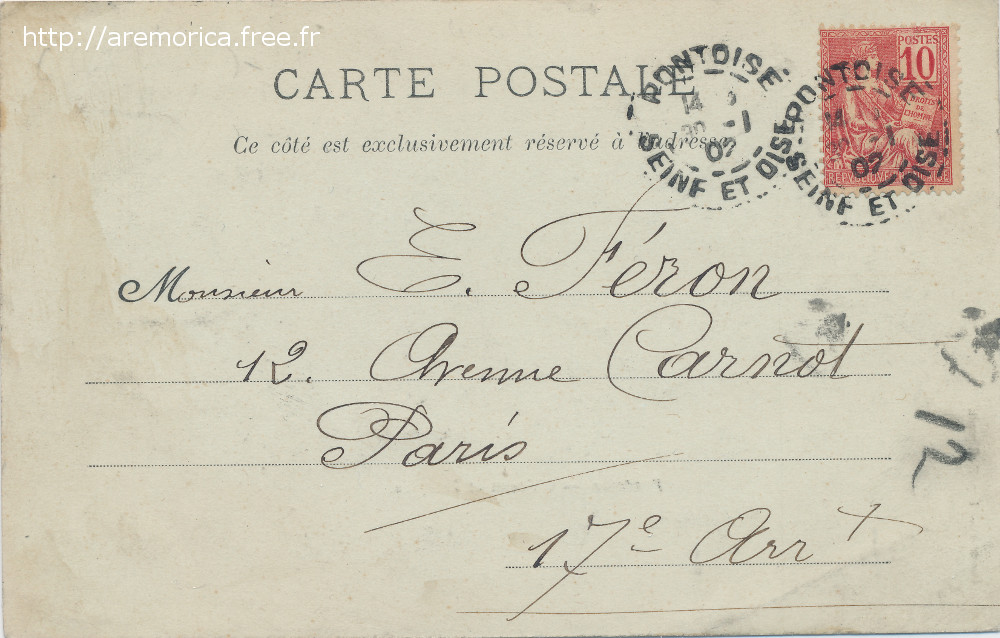 http://aremorica.free.fr
CARTE POSTALE
Ce côté est exclusivement réservé à l'adresse
PONTOISE
14
1
02
SEINE ET OISE
PONTOISE
1
02
SEINE ET OISE
POSTES
10
DROITS
DE
L'HOMME
Monsieur E. Féron
12. Avenue Carnot
Paris
17e Arrt
12